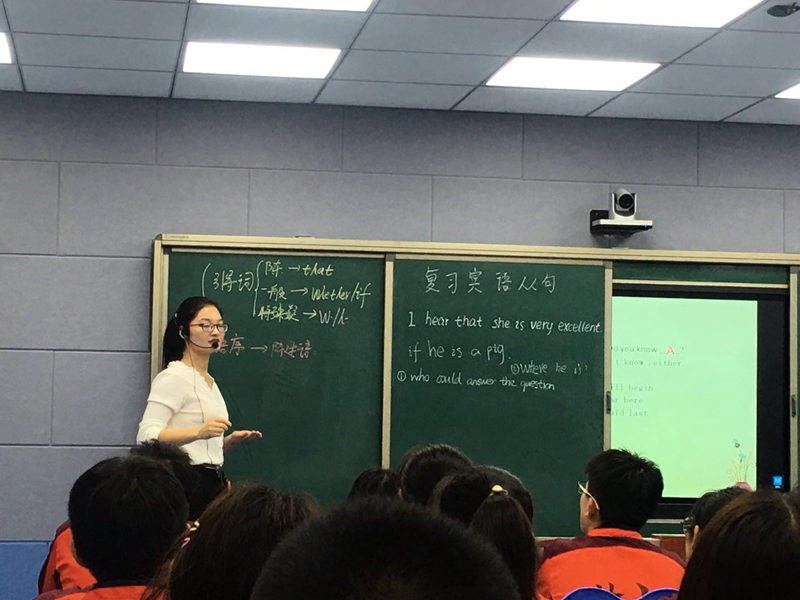 引导词
陈 → that
一般 → whether/if
特殊疑 → W-/h-
序 → 陈述语
复习宾语从句
I hear that she is very excellent.
if he is a pig.
② Where he is?
① who could answer the question
o you know A ?
t know , either.
ll begin
ar here
uld last